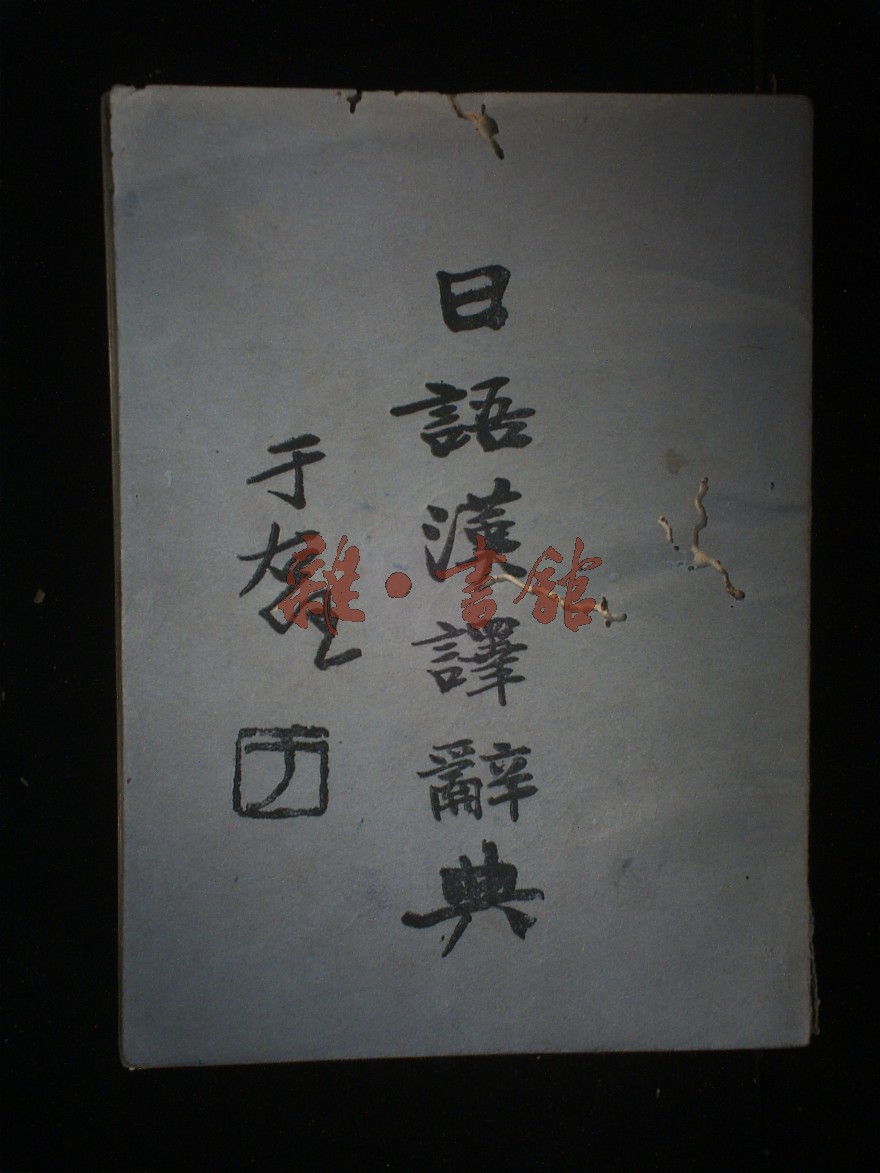 日語漢譯辭典
于右任
雜·書館